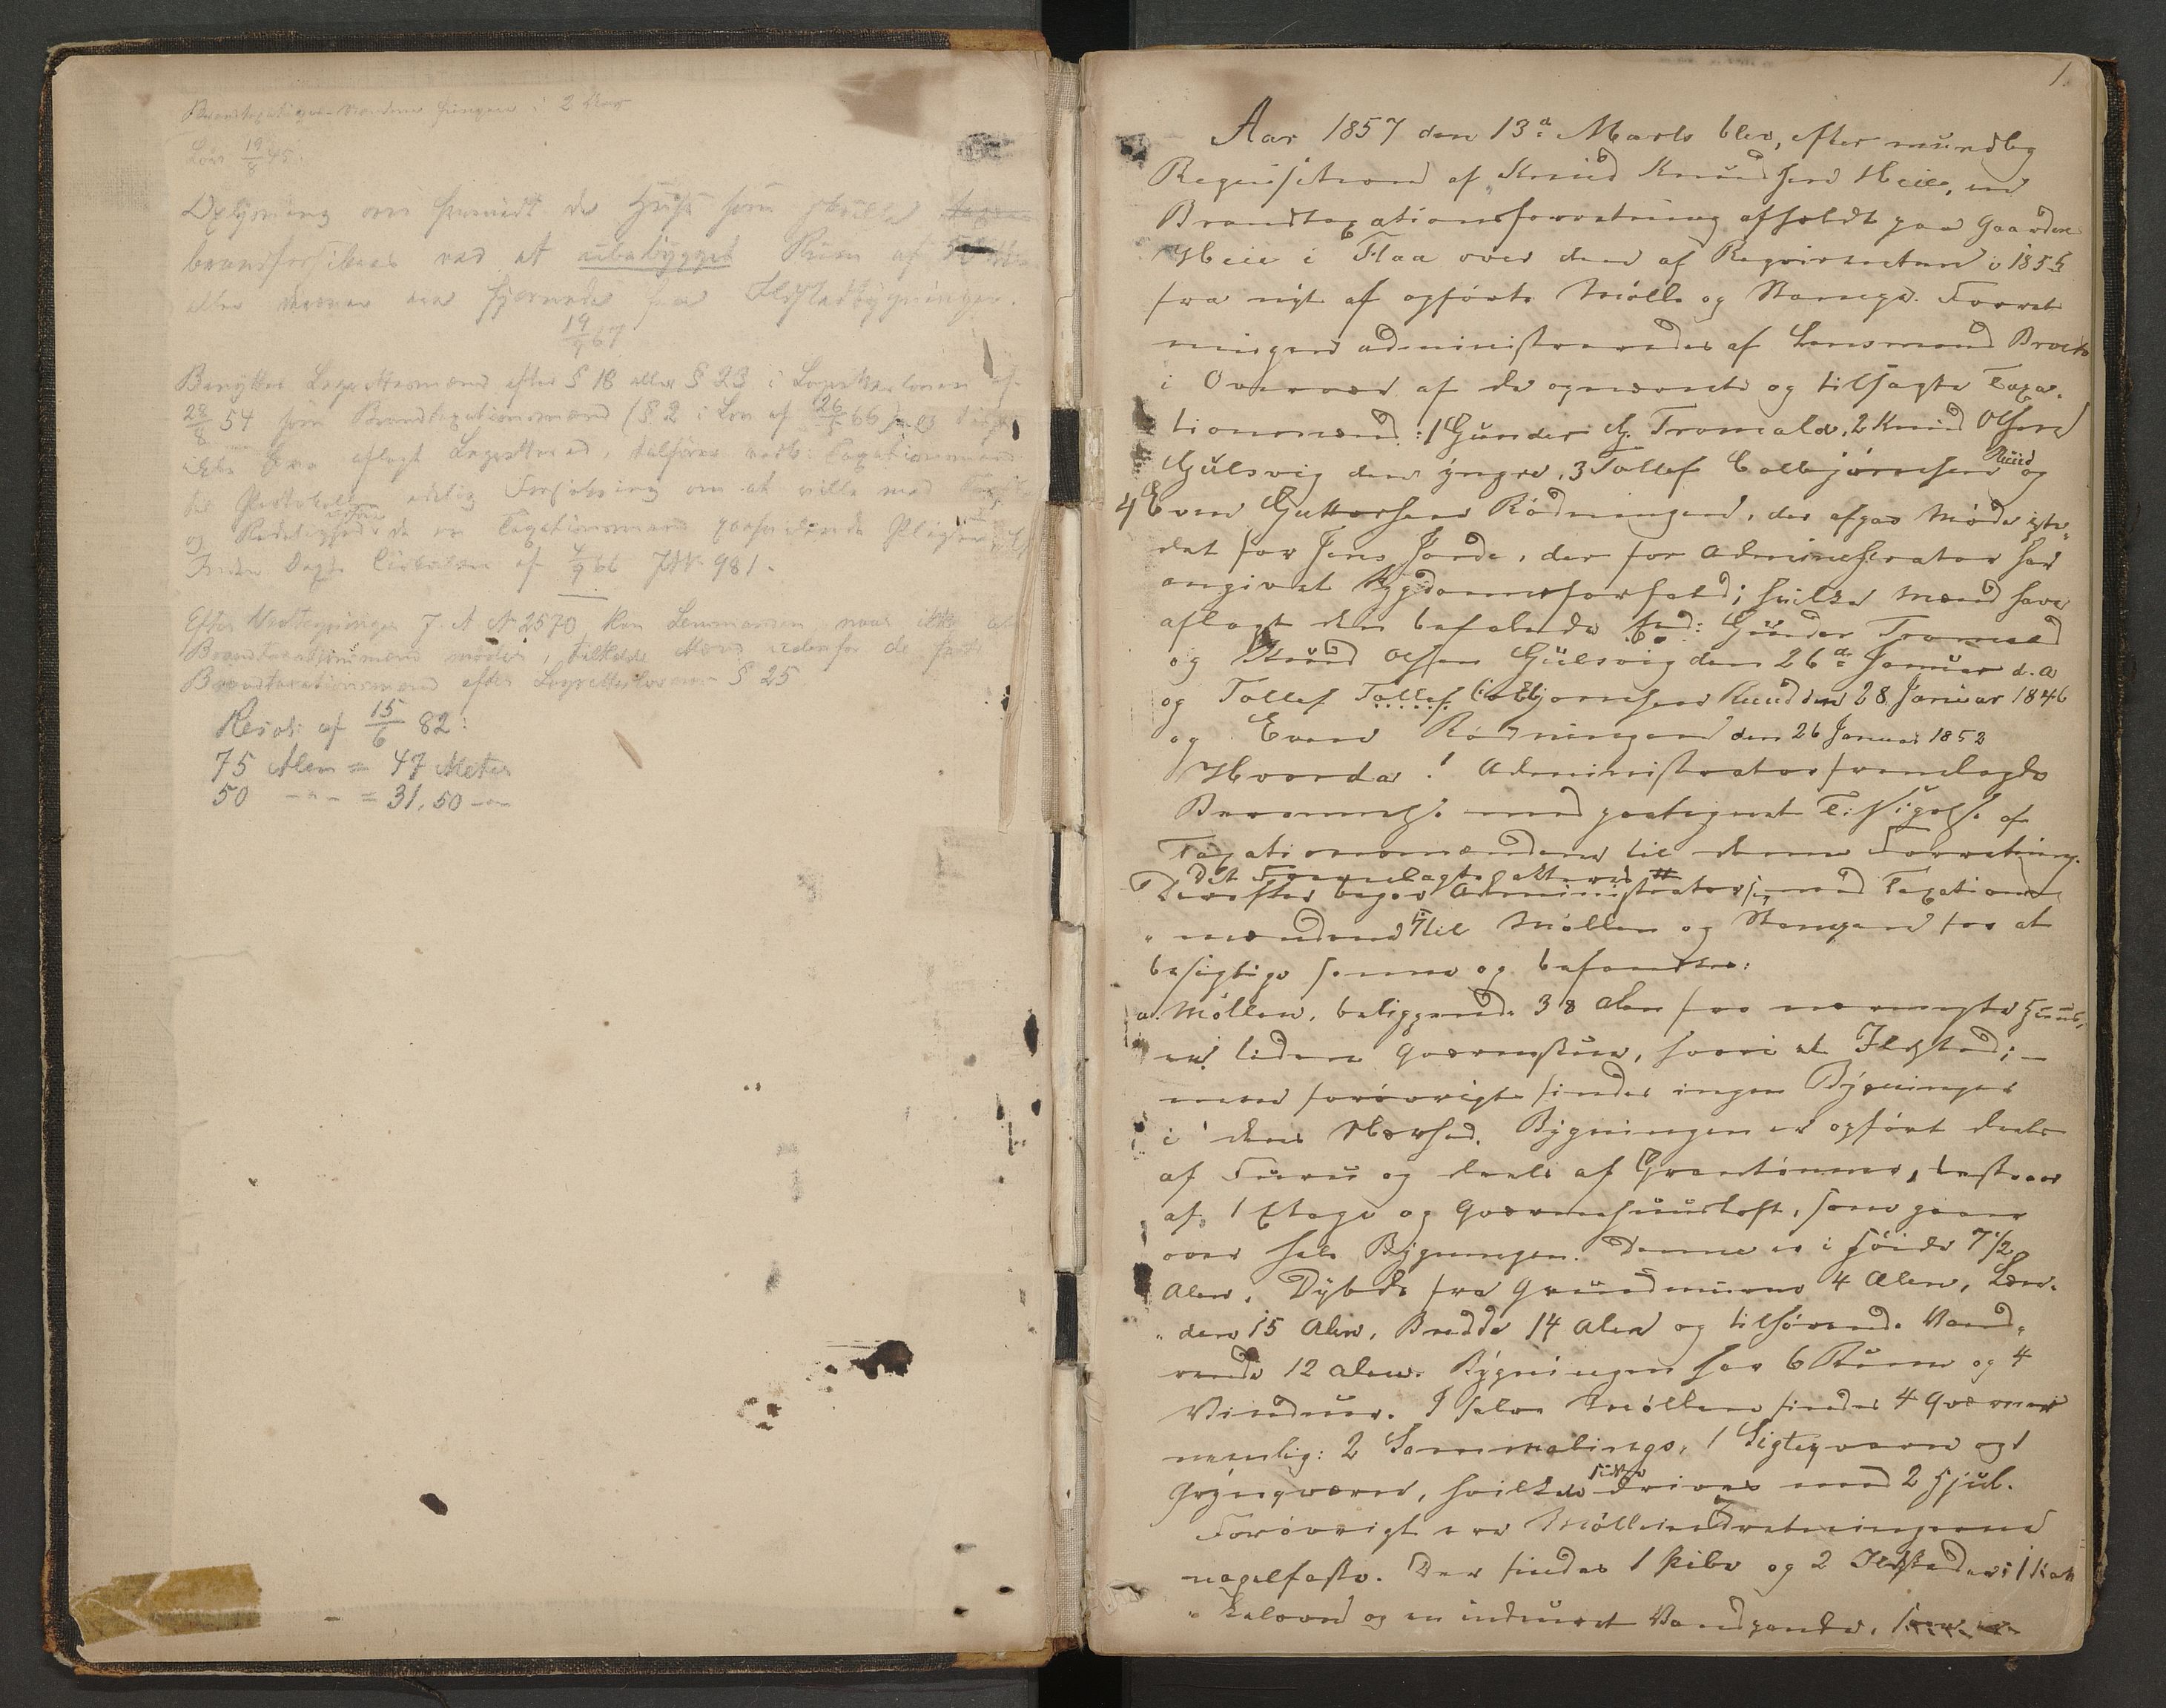 Brandtaxations-Mændene fungere i 2 Aar
Lov 19/8 45
Oplysning om hvorvidt de Huse som skulle
brandforsikres ved et ubebygget Rum af
eller mere ere fjernede fra Ildstedbygninger.
19/9 67
Benyttes Lagrettesmænd efter § 18 eller § 23 i Lagretteloven af
28/8 54 som Brandtaxationsmænd (§ 2 i Lov af 26/5 66) og disse
ikke have aflagt Lagretteed, tilføres vedk. Taxationsmænd
til Protokollen edelig Forsikring om at ville med
og Redelighed udføre de en Taxationsmand paahvilende Pligter
Indre Dept. Cirkulære af 7/9 66 JN. 981.
Efter Vedtegninger J. A No 2570 kan Lensmanden, naar ikke
Brandtaxationsmænd møder, tilkalde Mænd udenfor de faste
Brandtaxationsmænd efter Lagrettelovens § 25
Resol: af 15/6 82:
75 Alen = 47 Meter
50 -"- = 31,50 -"-
1.
Aar 1857 den 13de Marts blev, efter mundlig
Requisition af Knud Knudsen Heie, en
Brandtaxationsforretning afholdt paa Gaarden
Heie i Flaa over den af Requirenten i 1855
fra nyt af opførte Mølle og Stampe. Forret
ningen administreredes af Lensmand Brock
i Overvær af de opnævnte og tilsagte Taxa-
tionsmænd: 1 Gunder G. Tromald, 2 Knud Olsen
Gulsvig den yngre, 3 Tollef Colbjørnsen Ruud og
4 Even Guttorsen Rødningen, der afgav Møde iste-
det for Jens Jorde, der for Administrator har
angivet Sygdomsforfald; hvilke Mænd have
aflagt den befalede Eed: Gunder Tromald
og Knud Olsen Gulsvig den 26de Januar d. A
og Tollef Tollef Colbjørnsen Ruud den 28 Januar 1846
og Even Rødningen den 26 Januar 1852
Hvorda! Administrator fremlagde
Berammelse med paategnet Tilsigelse af
Taxationsmændene til denne Forretning.
Det Fremlagte akteres #
Derefter begav Administrator sig med Taxations
" mændene til Møllen og Stampen for at
besigtige samme og befandtes:
a. Møllen, beliggende 38 Alen fra nærmeste Huus,
en liden Qværnstue, hvori et Ildsted; -
men forøvrigt findes ingen Bygninger
i dens Nærhed. Bygningen er opført deels
af Furu og deels af Grantømmer, bestaar
af 1 Etage og Qværnehuusloft, som gaar
over hele Bygningen. Denne er i Høide 7 1/2
Alen, Dybde fra Grundmuren 4 Alen, Læn-
" den 15 Alen, Bredde 14 Alen og tilhørende Vand-
rende 12 Alen. Bygningen har 6 Rum og 4
Vinduer. I selve Møllen findes 4 Qværner
nemlig: 2 Sammalings, 1 Sigteqværn og 1
Grynqværn, hvilke drives med 2 Hjul.
Forøvrigt ere Mølleindretningerne
nagelfaste. Der findes 1 Pibe og 2 Ildsteder: 1 Kak
" kelovn og en indmuret Vandpande,